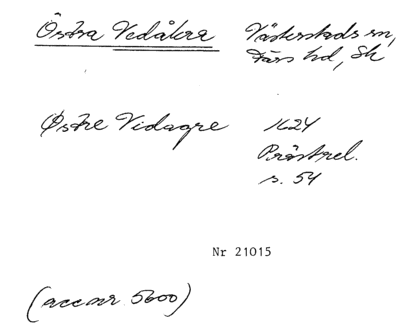 Östra Vedåkra Västerstads sn,
Färs hd, Sk
Østre Vidagre 1624
Prästrel.
s. 54
Nr 21015
(acc nr 5600)